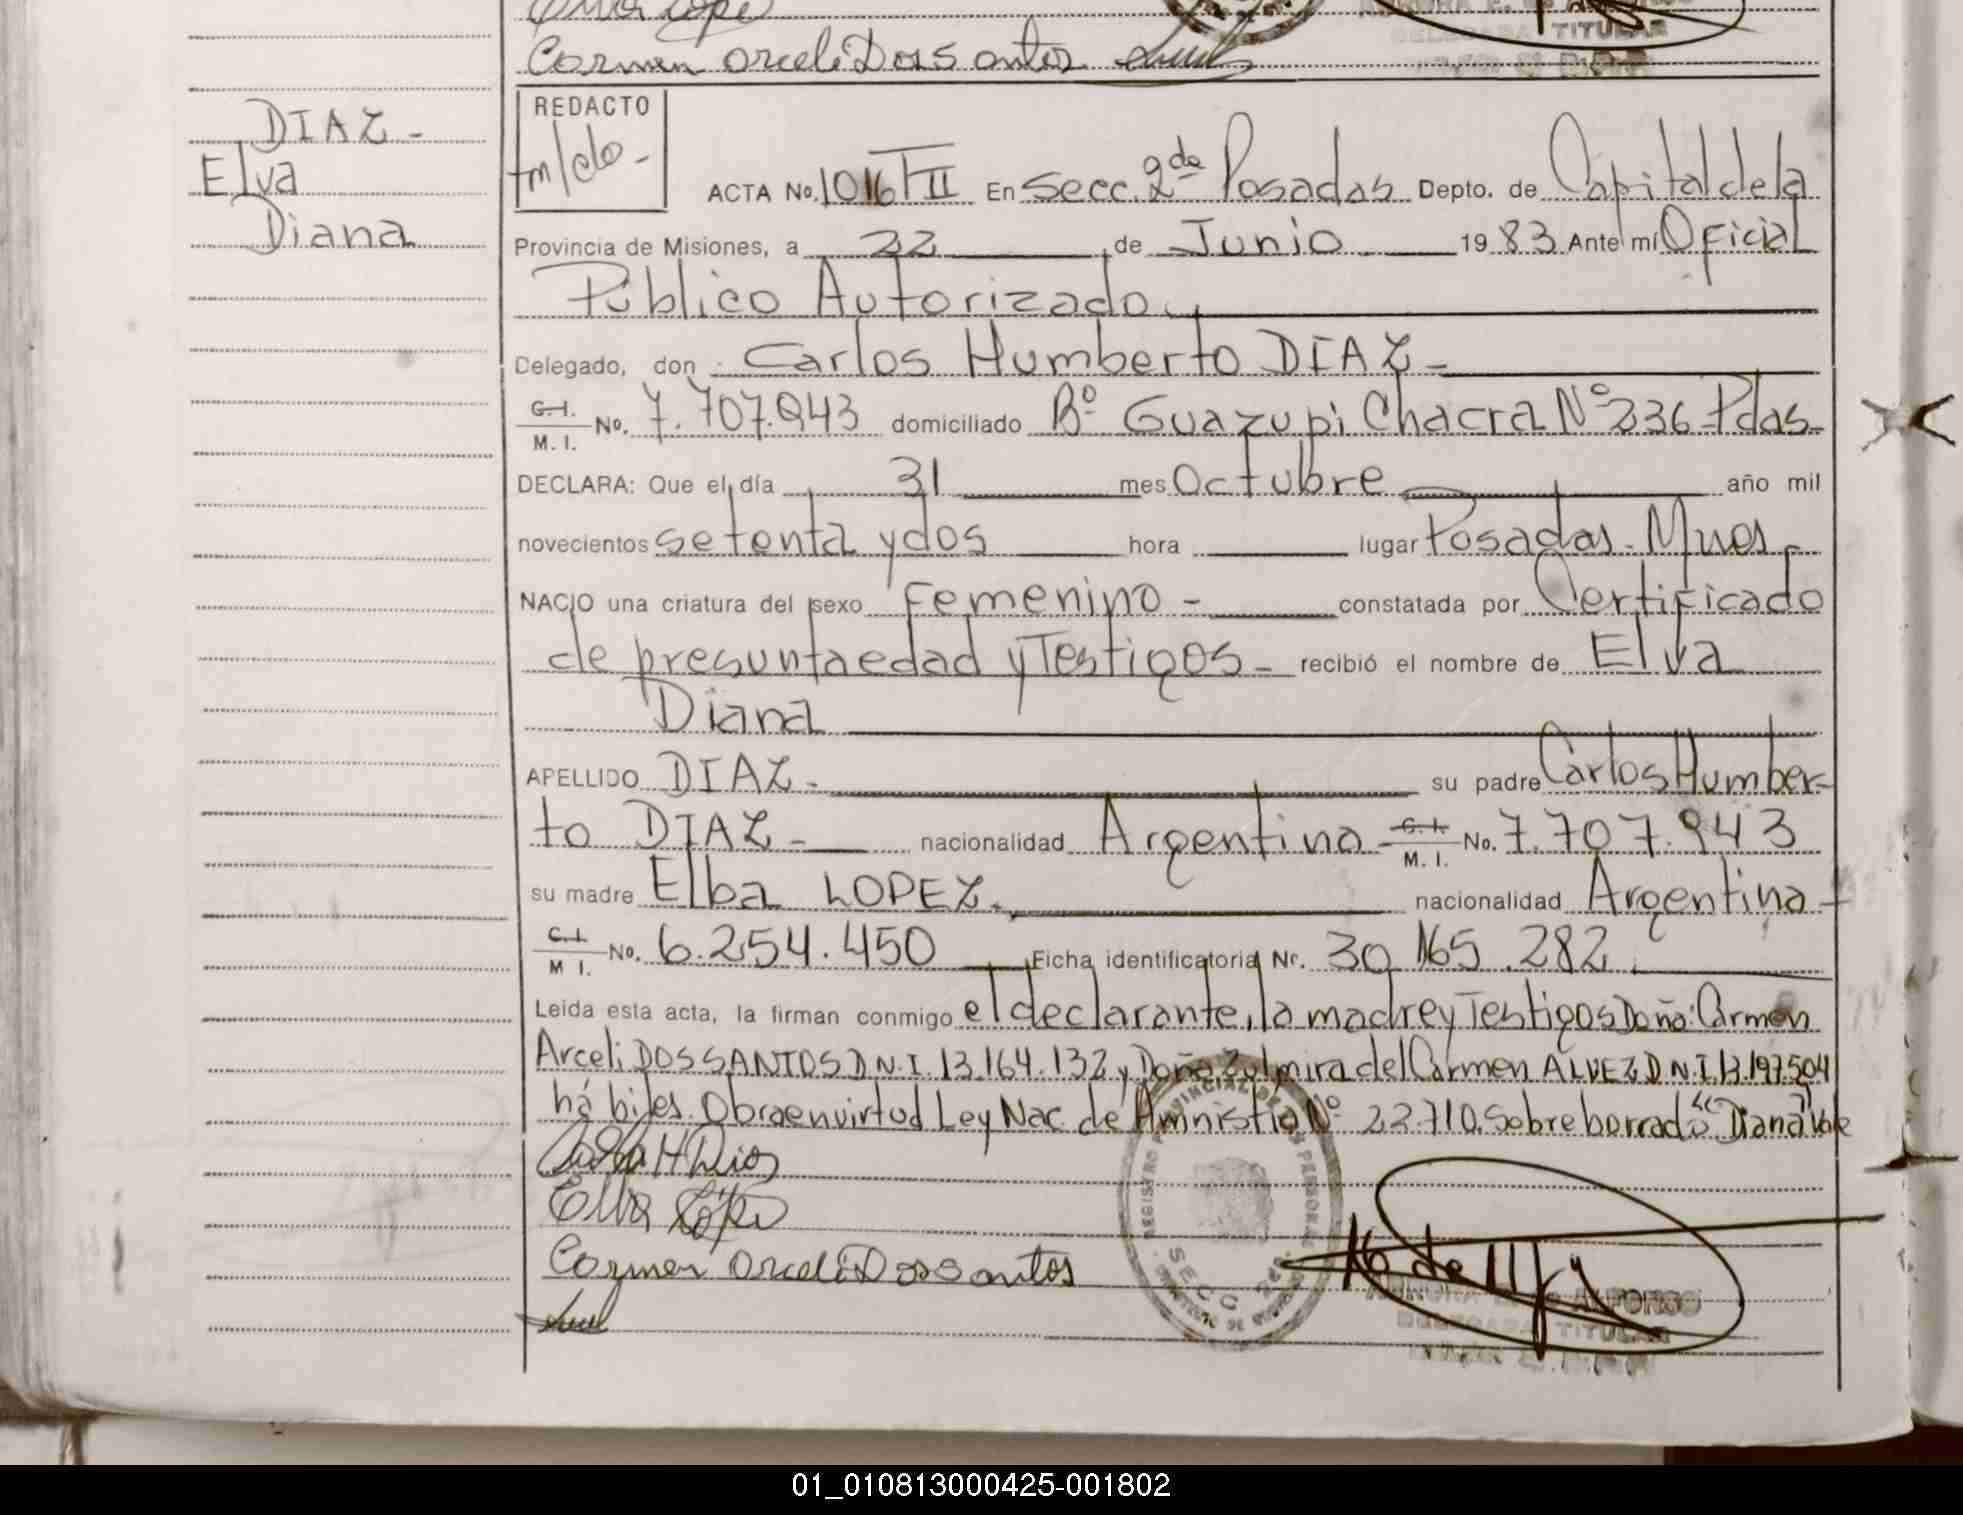 Carmen Arceli Dos Santos
TITULAR
DIAZ -
Elva
Diana
REDACTO
m/do-
ACTA No. 1016 T III En Secc. 2da Posadas Depto. de Capital de la
Provincia de Misiones, a 22 de Junio 1983 Ante mí Oficial
Público Autorizado
Delegado, don Carlos Humberto DIAZ -
C.I. M.I. No. 7.707.943 domiciliado Bº Guazupi Chacra Nº 236 Pdas-
DECLARA: Que el día 31 mes Octubre año mil
novecientos setenta y dos hora lugar Posadas. Mnes -
NACIO una criatura del sexo Femenino - constatada por Certificado
de presunta edad y Testigos - recibió el nombre de Elva
Diana
APELLIDO DIAZ - su padre Carlos Humber-
to DIAZ - nacionalidad Argentino - C.I. M.I. No. 7.707.943
su madre Elba LOPEZ. nacionalidad Argentina -
C.I. M I. No. 6.254.450 Ficha identificatoria Nr. 30 165.282.
Leida esta acta, la firman conmigo el declarante, la madre y Testigos Doña: Carmen
Arceli DOS SANTOS D N.I. 13.164.132 y Doña Zulmira del Carmen ALVEZ D N.I. 13.197.504
hábiles. Obra en virtud Ley Nac. de Amnistia Nº 22.710. Sobre borrado "Diana" Vale
Carlos H Diaz
Elba López
Carmen Arceli Dos Santos
REGISTRO PROVINCIAL DE LAS PERSONAS
SECC. 2da
ALFONSO
DELEGADA TITULAR
01_010813000425-001802